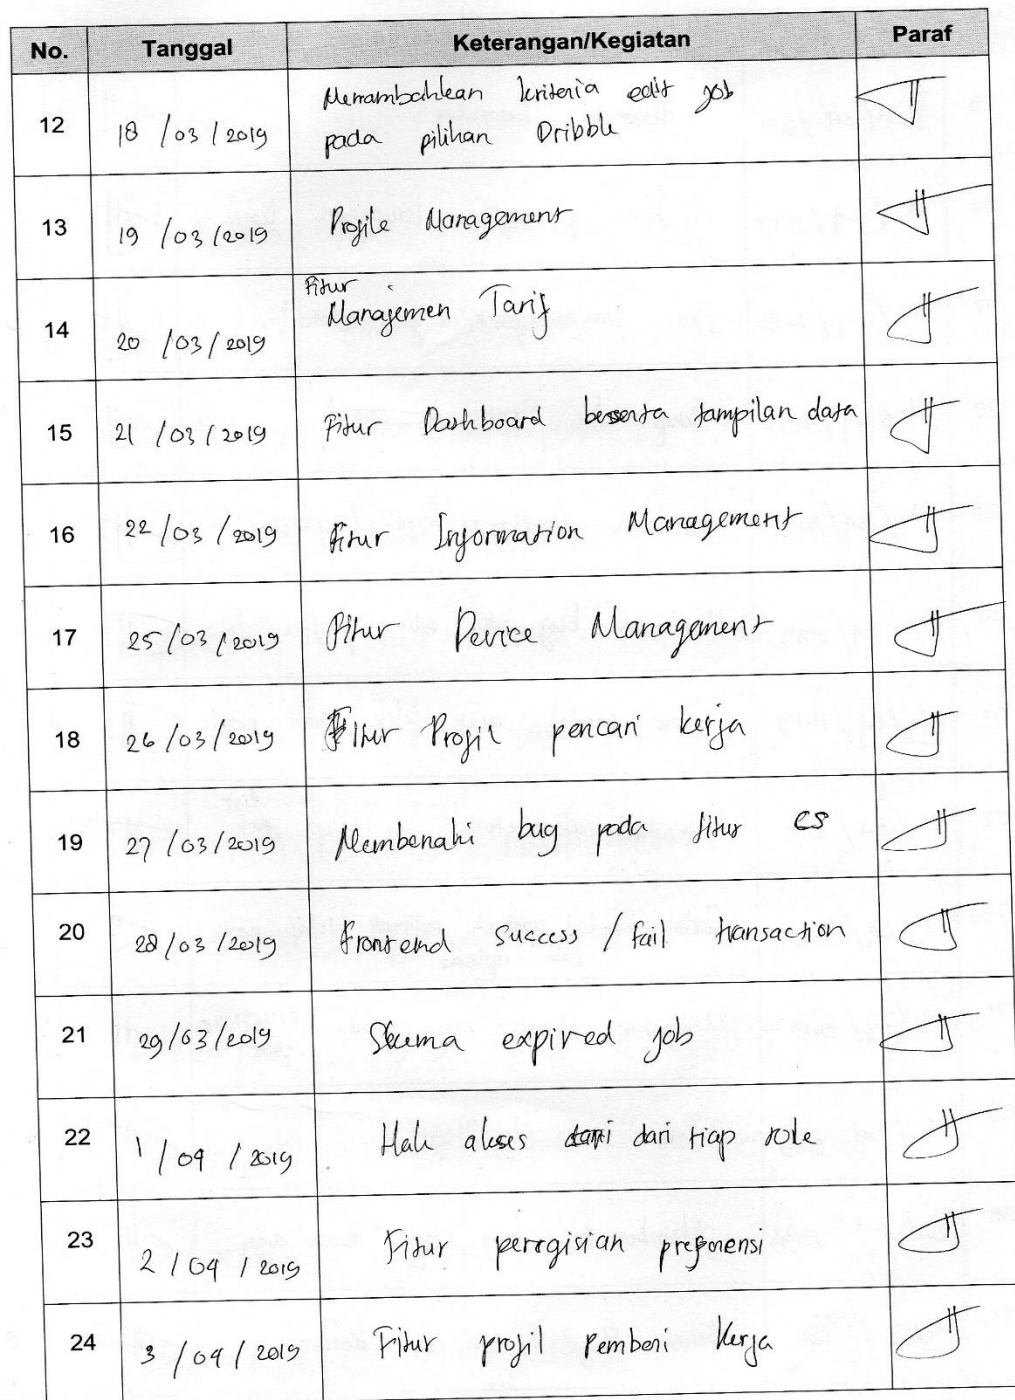 No. Tanggal Keterangan/Kegiatan Paraf
12 18 /03 /2019 Menambahkan kriteria edit job
pada pilihan Dribble
13 19 /03 /2019 Profile Management
Fitur
14 20 /03 /2019 Managemen Tarif
15 21 /03 /2019 Fitur Dashboard beserta tampilan data
16 22 /03 /2019 Fitur Information Management
17 25 /03 /2019 Fitur Device Management
18 26 /03 /2019 Fitur Profil pencari kerja
19 27 /03 /2019 Membenahi bug pada fitur cs
20 28 /03 /2019 Frontend success / fail transaction
21 29 /03 /2019 Skema expired job
22 1 / 04 / 2019 Hak akses dari tiap role
23 2 / 04 / 2019 Fitur pengisian preferensi
24 3 / 04 / 2019 Fitur profil Pemberi Kerja